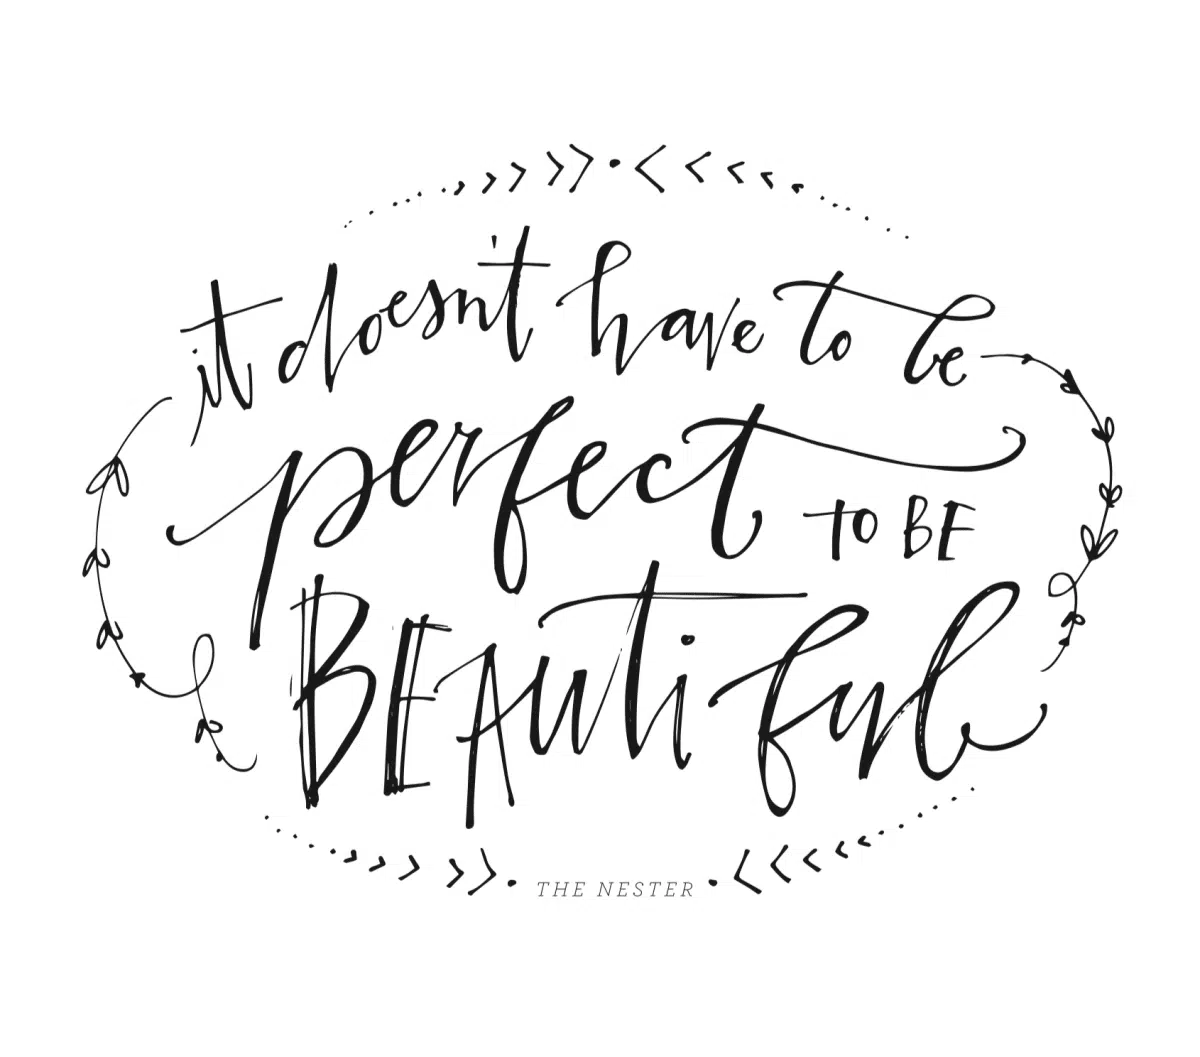 it doesn't have to be
perfect TO BE
BEAutiful
THE NESTER